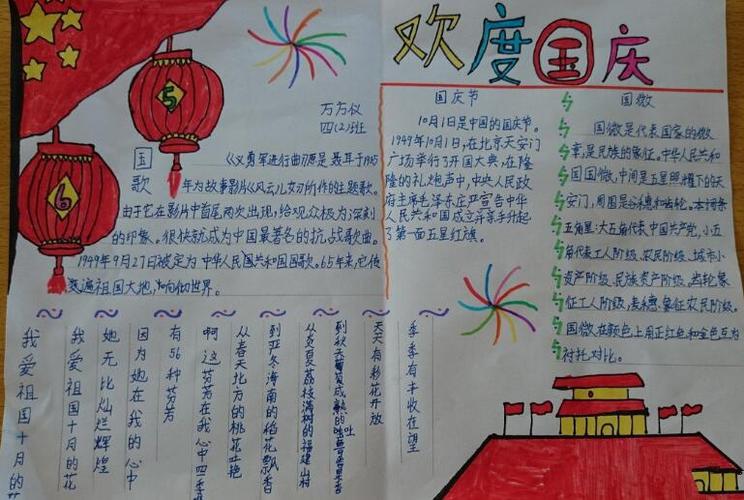 欢度国庆
5
6
万方仪
四(2)班
国歌
《义勇军进行曲》原是聂耳于1935
年为故事影片《风云儿女》所作的主题歌。
由于它在影片中首尾两次出现,给观众极为深刻
的印象。很快就成为中国最著名的抗战歌曲。
1949年9月27日被定为中华人民共和国国歌。65年来,它传
遍祖国大地,和向世界。
国庆节
10月1日是中国的国庆节。
1949年10月1日,在北京天安门
广场举行了开国大典,在隆
隆的礼炮声中,中央人民政
府主席毛泽东庄严宣告中华
人民共和国成立并亲手升起
了第一面五星红旗。
国徽
国徽是代表国家的徽
章,是民族的象征。中华人民共和
国国徽,中间是五星照耀下的天
安门,周围是谷穗和齿轮。
五角星:大五角代表中国共产党,小五
角代表工人阶级、农民阶级、城市小
资产阶级、民族资产阶级、齿轮象
征工人阶级,麦穗象征农民阶级。
国徽在颜色上用正红色和金色互为
衬托对比。
季季有丰收在望
天天有彩花开放
到秋天
从炎夏荔枝满树的福建山村
到亚冬海南的稻花飘香
从春天北方的桃花吐艳
啊这芬芳在我心中四季
有56种芬芳
因为她在我的心中
她无比灿烂辉煌
我爱祖国十月的花
我爱祖国十月的花